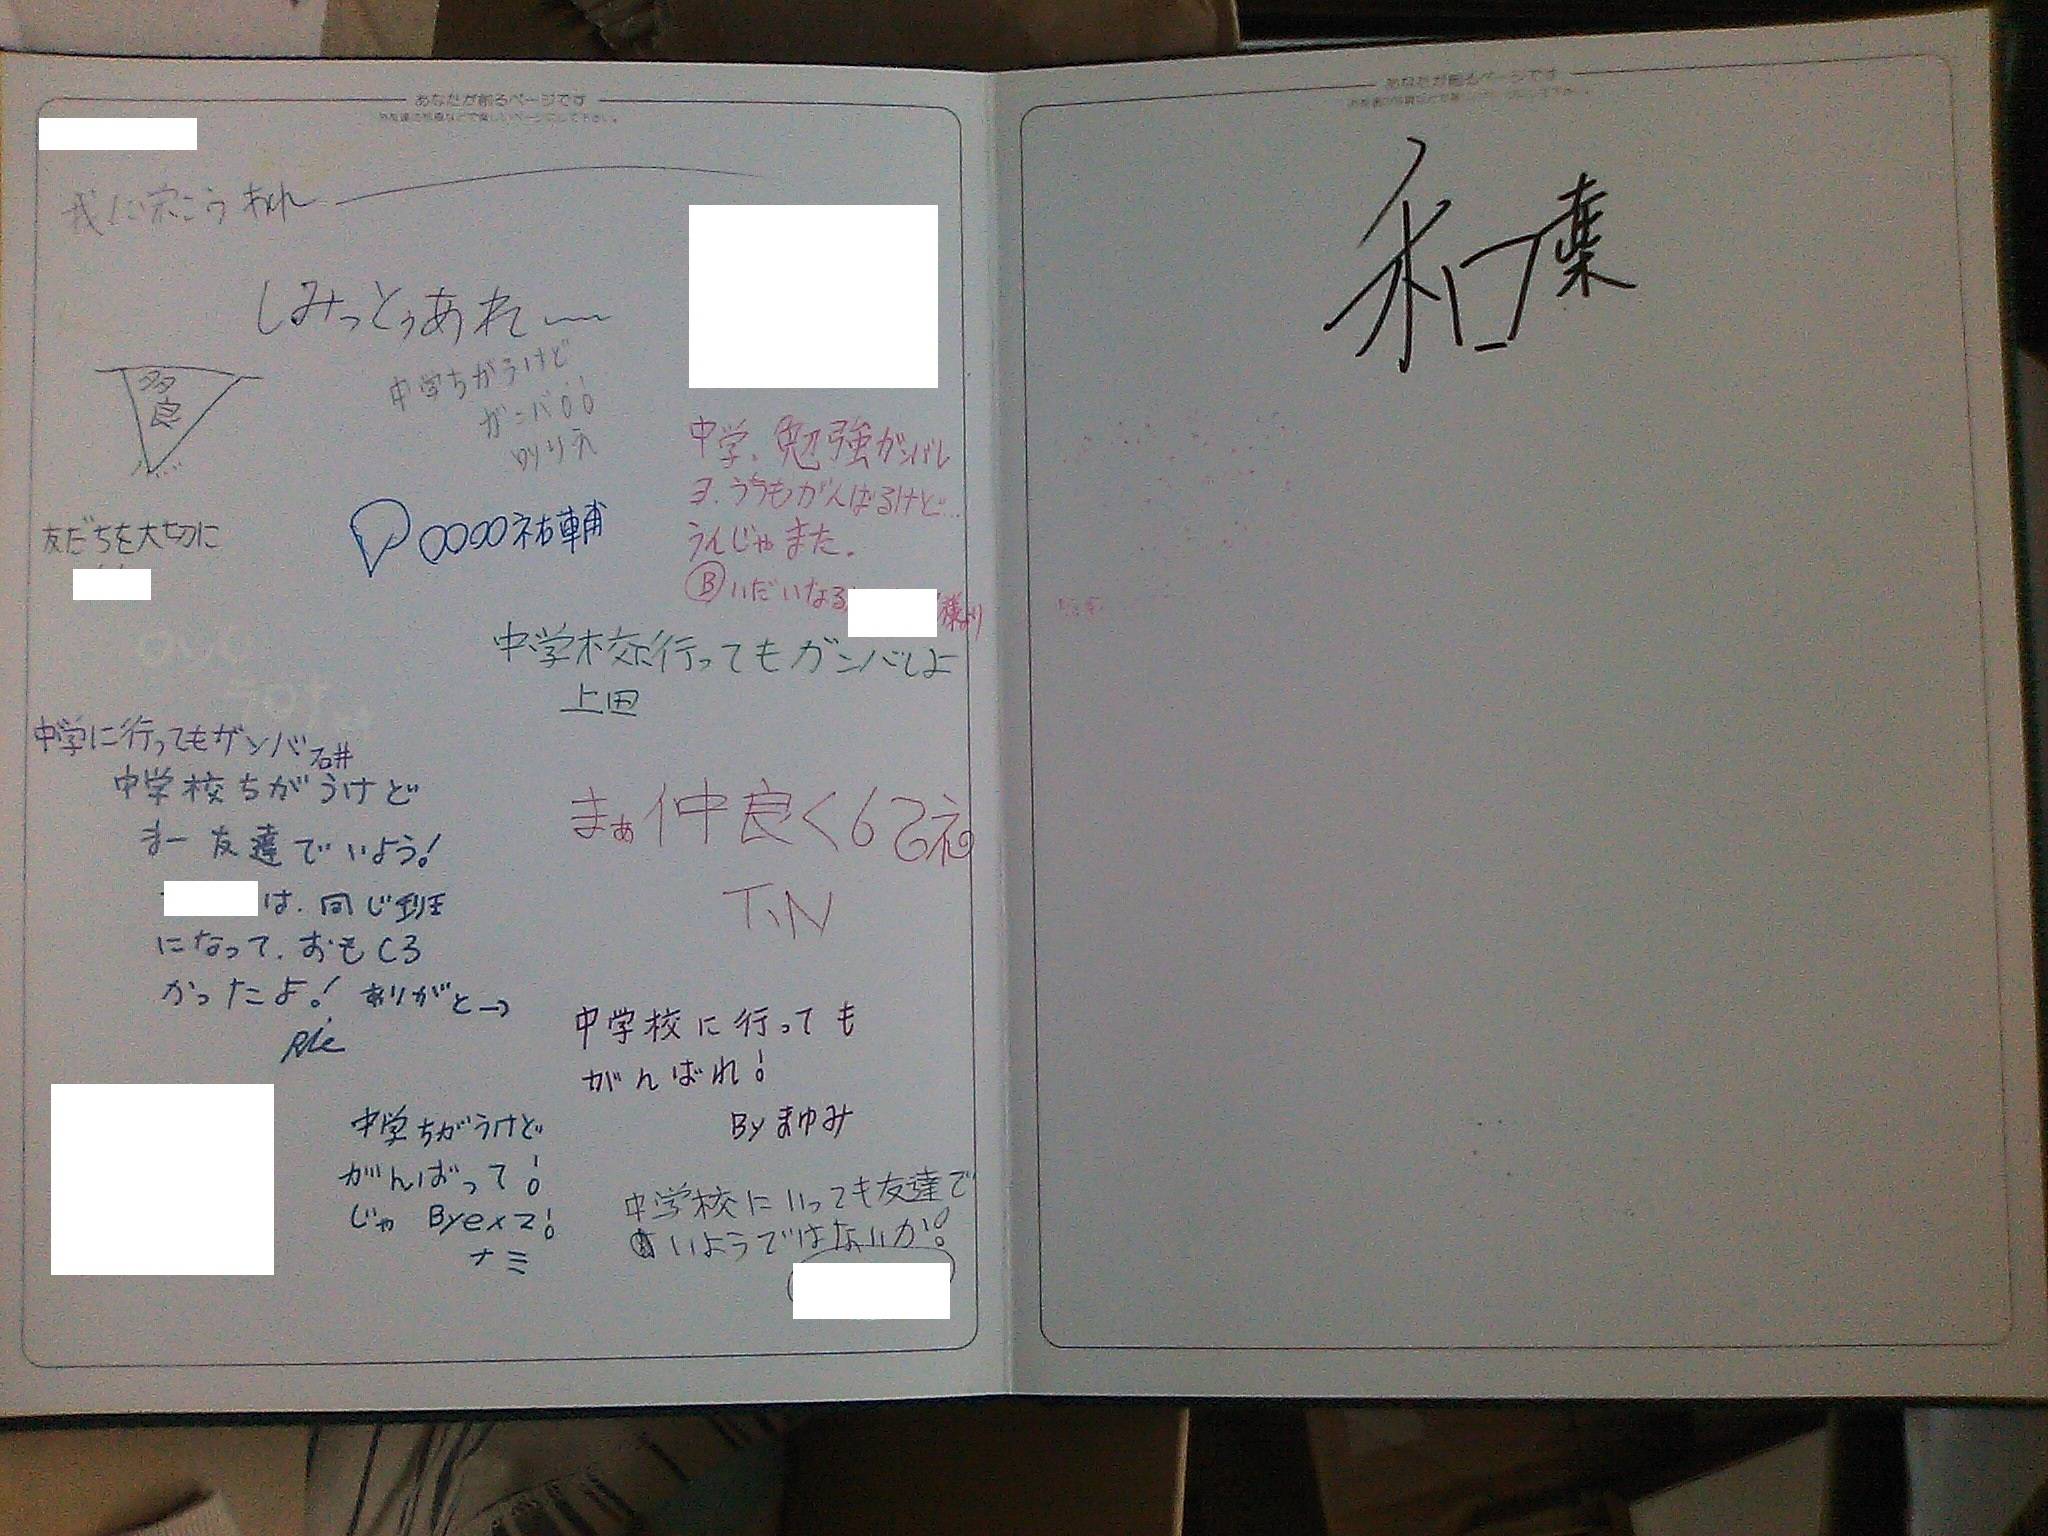 あなたが創るページです
お友達の写真などで楽しいページにして下さい。
我に栄こうあれ
しみっとぅあれ
中学ちがうけど
ガンバ!!
多良
友だちを大切に
祐輔
中学、勉強ガンバレ
ヨ、うちもがんばるけど…
うんじゃまた。
Ⓑいだいなる
様より
中学校に行ってもガンバレよ
上田
中学に行ってもガンバ
石井
中学校ちがうけど
まー友達でいよう!
は、同じ班
になって、おもしろ
かったよ! ありがと→
Rie
まぁ仲良く
T.N
中学校に行っても
がんばれ!
By まゆみ
中学ちがうけど
がんばって!
じゃ Bye×2!
ナミ
中学校にいっても友達で
いようではないか!
あなたが創るページです
和葉